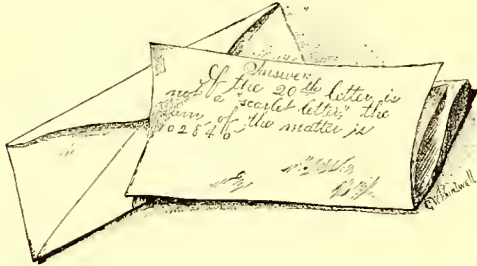 Answer.
If the 20th letter is
not a "scarlet letter," the
sum of the matter is
102846